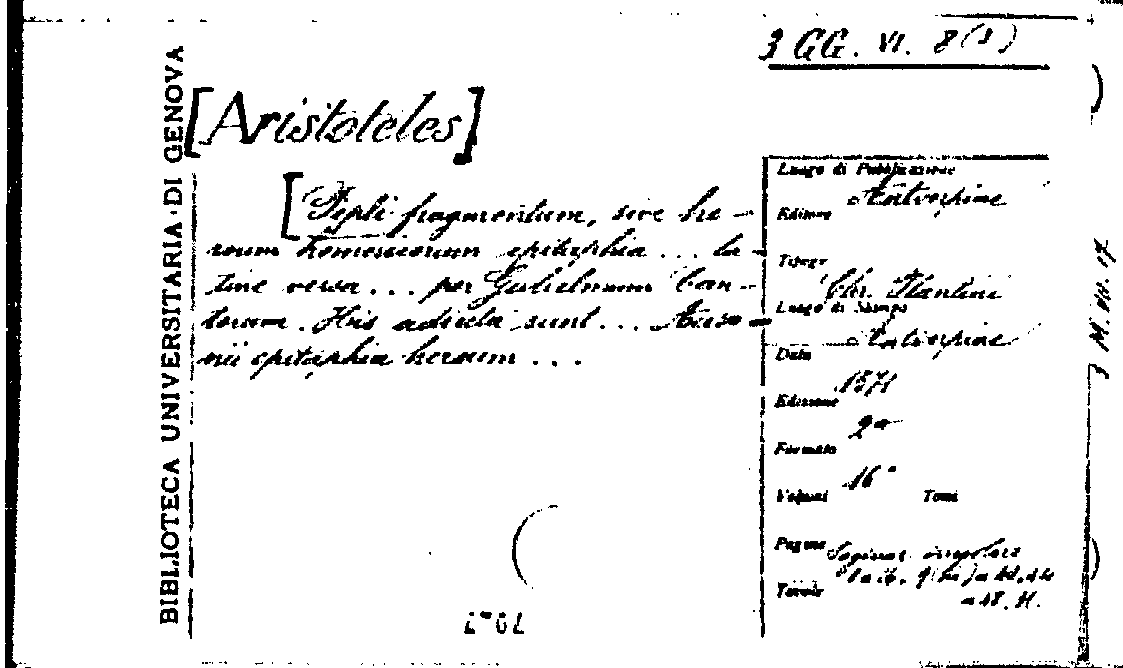 3 GG. VI. 8(3)
BIBLIOTECA UNIVERSITARIA · DI GENOVA
[Aristoteles]
[Pepli fragmentum, sive he-
roum homericorum epitaphia ... la-
tine versa ... per Gulielmum Can-
terum. His adiecta sunt ... Auso-
nii epitaphia heroum ...
Luogo di Pubblicazione
Antverpiae
Editore
Tipogr.
Chr. Plantini
Luogo di Stampa
Antverpiae
Data
1571
Edizione
2a
Formato
16°
Volumi Tomi
Pagine
Tavole